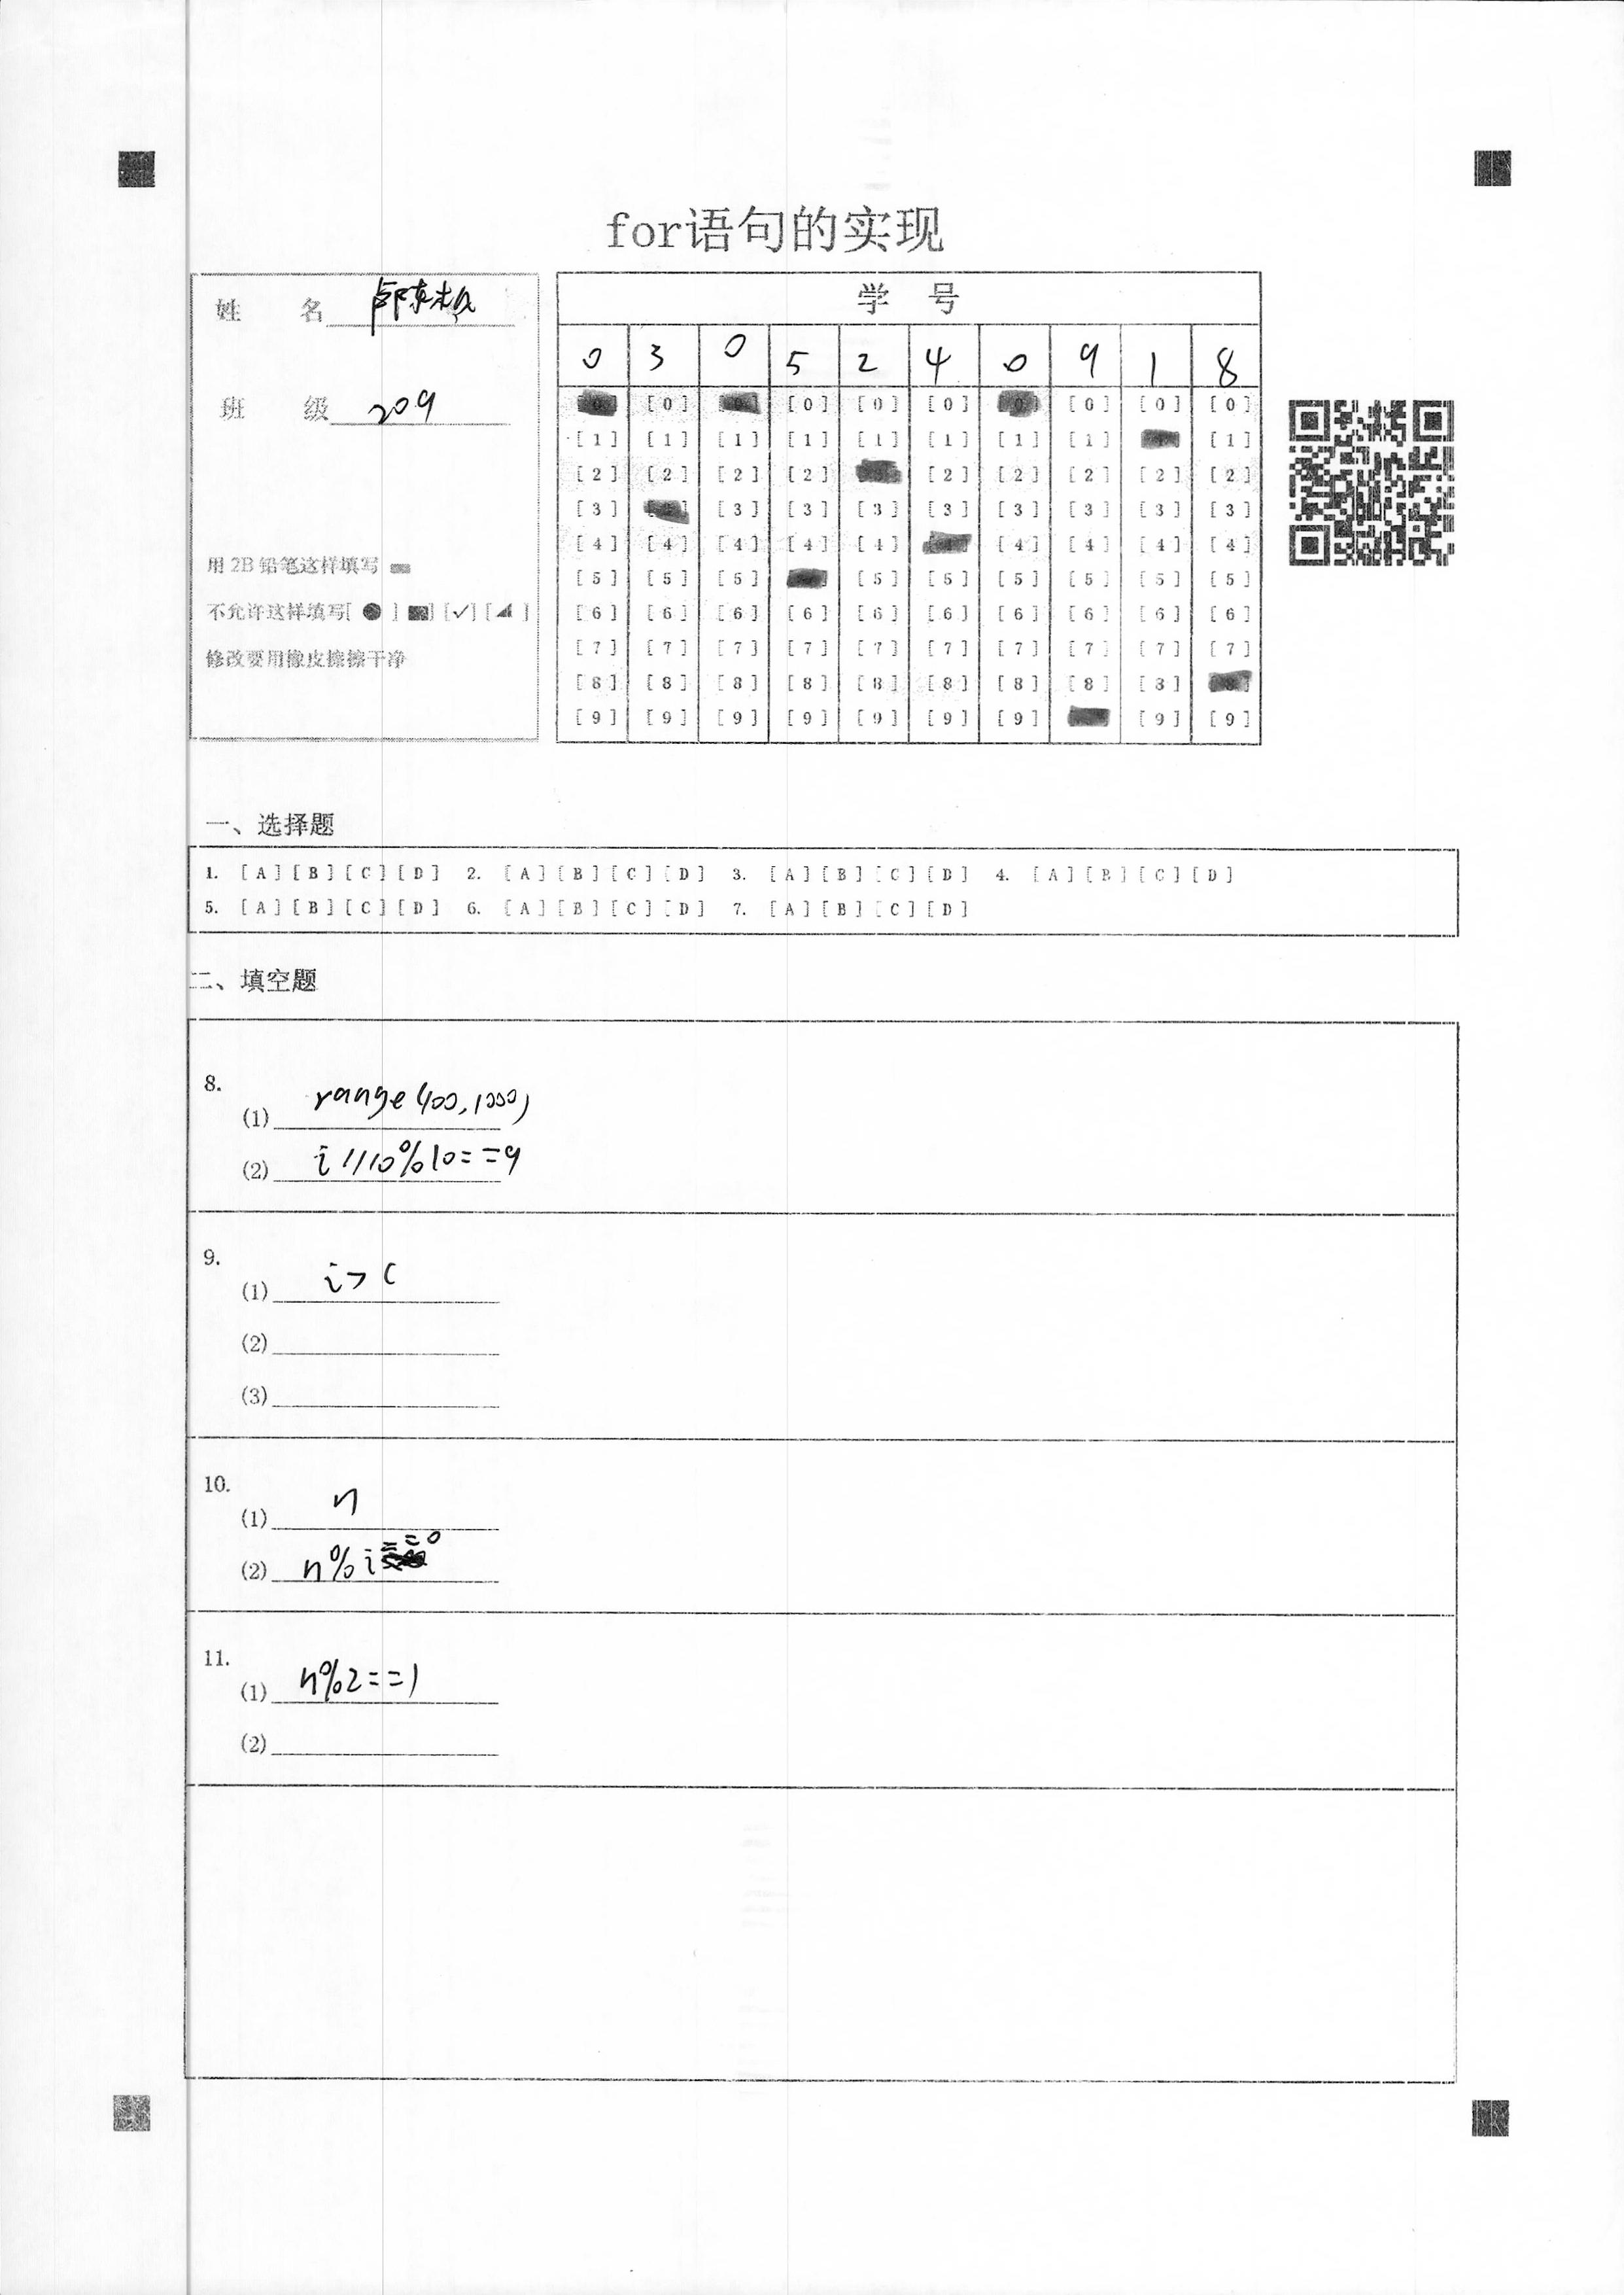 for语句的实现
姓 名
班 级 209
用2B铅笔这样填写
不允许这样填写[ ● ] [■] [✓] [◢ ]
修改要用橡皮擦擦干净
学 号
0 3 0 5 2 4 0 9 1 8
[0] [0] [0] [0] [0] [0] [0]
[1] [1] [1] [1] [1] [1] [1] [1] [1]
[2] [2] [2] [2] [2] [2] [2] [2] [2]
[3] [3] [3] [3] [3] [3] [3] [3] [3]
[4] [4] [4] [4] [4] [4] [4] [4] [4]
[5] [5] [5] [5] [5] [5] [5] [5] [5]
[6] [6] [6] [6] [6] [6] [6] [6] [6] [6]
[7] [7] [7] [7] [7] [7] [7] [7] [7] [7]
[8] [8] [8] [8] [8] [8] [8] [8] [8]
[9] [9] [9] [9] [9] [9] [9] [9] [9]
一、选择题
1. [A][B][C][D] 2. [A][B][C][D] 3. [A][B][C][D] 4. [A][B][C][D]
5. [A][B][C][D] 6. [A][B][C][D] 7. [A][B][C][D]
二、填空题
8.
(1) range(400,1000)
(2) i//10%10==9
9.
(1) i>c
(2)
(3)
10.
(1) n
(2) n%i==0
11.
(1) n%2==1
(2)